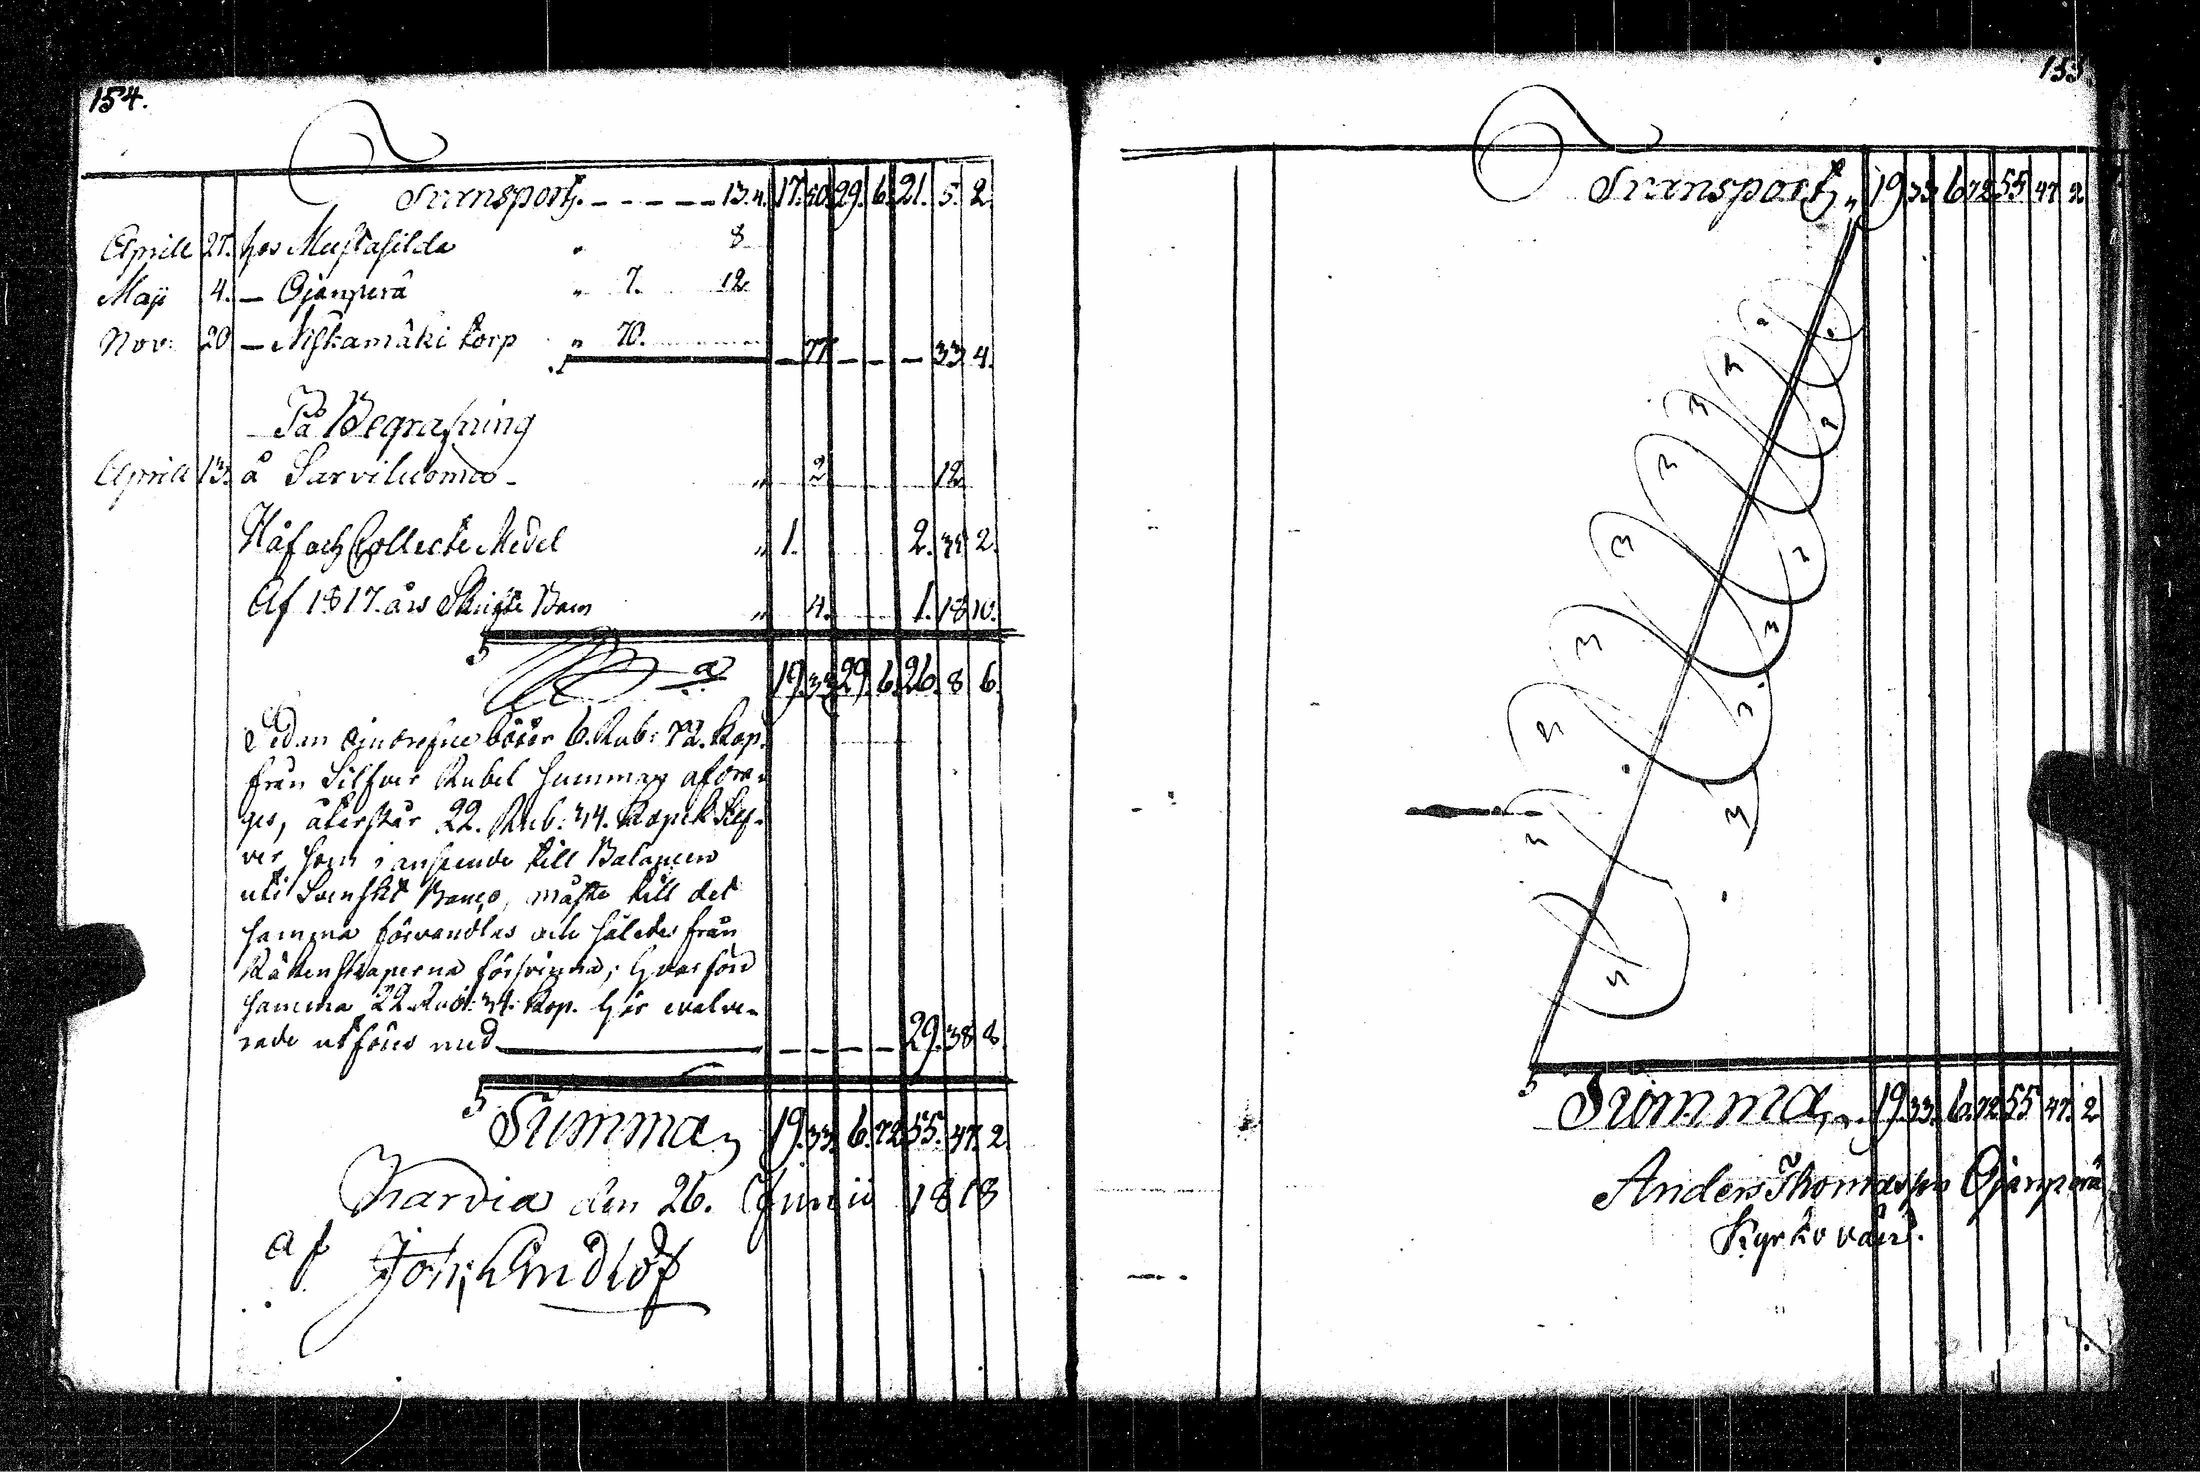 154.
Transport. – – – – – 13.4. 17. 50. 29. 6. 21. 5. 2.
Aprill 27. hos Mustasilda " 8
Maji 4. — Ojanperä " 7. 12
Nov: 20 — Niskamäki torp " 70. — 77 — — — 33 4.
På Begrafning
Aprill 13. å Sarviluoma " 2 12
Håf och Collecte Medel " 1. 2. 2.
Af 1817. års " 4. 1. 18 10.
19. 33 29. 6. 26. 8 6.
Sedan böter 6. Rub: 72. Kop.
från Silfver Rubel Summan afdra-
ges, återstår 22. Rub: 34. Kopek Silf-
ver som i anseende till Balancen
uti Svenskt Banco, måste till det
samma förvandlas och således från
Räkenskaperna försvinna; hvarföre
samma 22 Rub: 34. Kop. här evalve-
rade utföres med — — — — 29. 38 8.
Summa 19. 33. 6. 72 55. 47. 2
Karvia den 26. Junii 1818
af Joh: Lindlöf
155
Transport " 19 33 6 72 55 47 2
Summa 19. 33. 6. 72 55 47. 2
Anders Thomasson Ojanperä
Kyrkovärd.